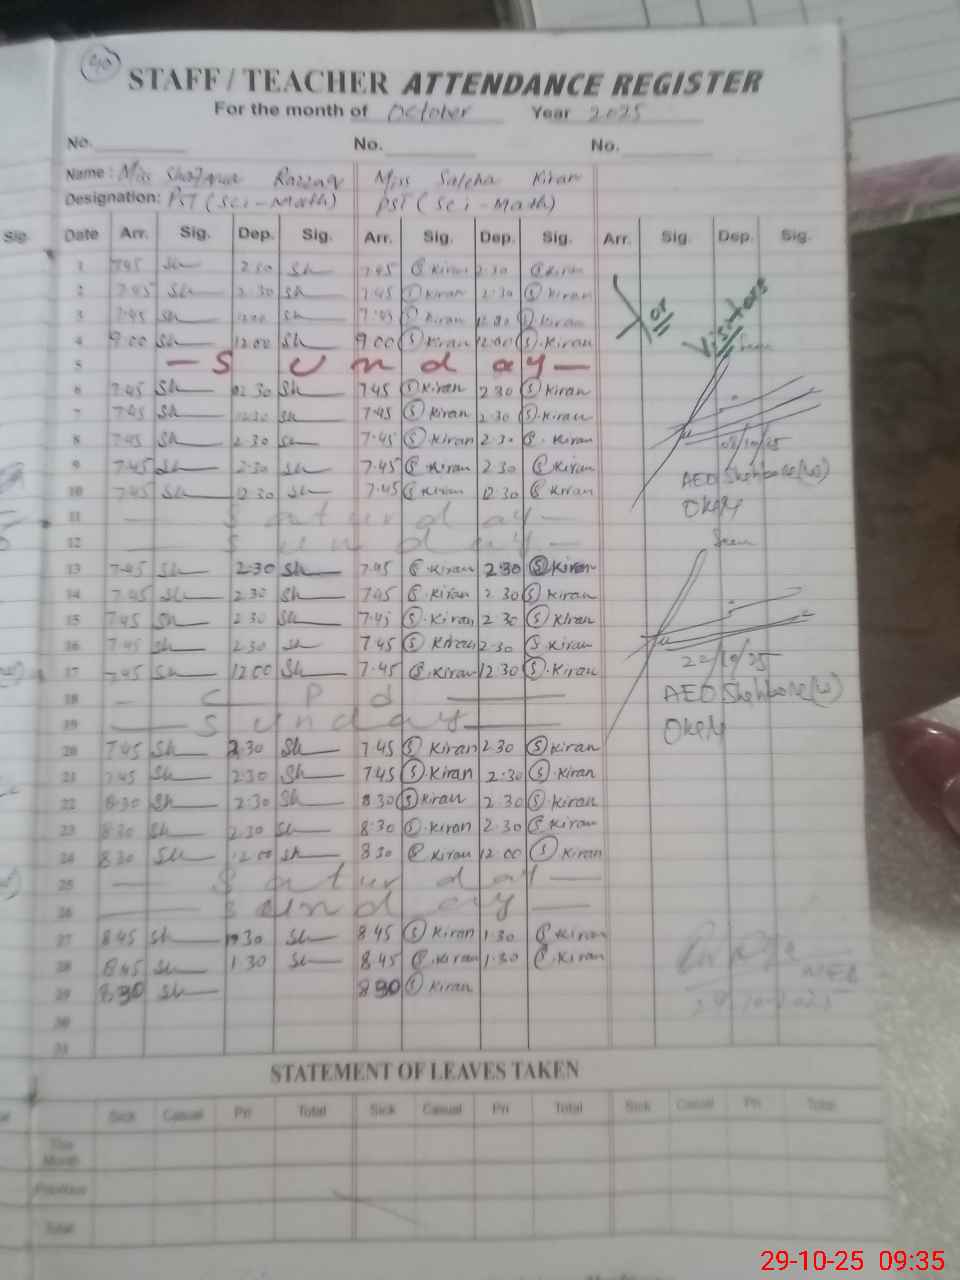 40
STAFF / TEACHER ATTENDANCE REGISTER
For the month of October Year 2025
No. No. No.
Name: Miss Razzaq Miss Saleha Kiran
Designation: PST (Sci-Math) PST (Sci-Math)
Sig. Date Arr. Sig. Dep. Sig. Arr. Sig. Dep. Sig. Arr. Sig. Dep. Sig.
1 7.45 Sh 2.30 Sh 7.45 S Kiran 2.30 S Kiran
2 7.45 Sh 2.30 Sh 7.45 S Kiran 2.30 S Kiran For Visitors
3 7.45 Sh 12.00 Sh 7.45 S Kiran S Kiran
4 9.00 Sh 12.00 Sh 9.00 S Kiran 12.00 S. Kiran Seen
5 - Sunday -
6 7.45 Sh Sh 7.45 S Kiran 2.30 S Kiran
7 7.45 Sh Sh 7.45 S Kiran 2.30 S. Kiran
8 7.45 Sh 2.30 Sh 7.45 S. Kiran 2.30 S. Kiran
9 7.45 Sh 2.30 Sh 7.45 S Kiran 2.30 S Kiran AEO
10 7.45 Sh 12.30 Sh 7.45 S Kiran 12.30 S Kiran
11 Saturday
12 Sunday Seen
13 7.45 Sh 2.30 Sh 7.45 S. Kiran 2.30 S Kiran
14 7.45 Sh 2.30 Sh 7.45 S. Kiran 2.30 S Kiran
15 7.45 Sh 2.30 Sh 7.45 S. Kiran 2.30 S Kiran
16 7.45 Sh 2.30 Sh 7.45 S Kiran 2.30 S. Kiran
17 7.45 Sh 12.00 Sh 7.45 S. Kiran 12.30 S. Kiran 22/10/25
18 C P d AEO
19 Sunday
20 7.45 Sh 2.30 Sh 7.45 S Kiran 2.30 S Kiran
21 7.45 Sh 2.30 Sh 7.45 S. Kiran 2.30 S. Kiran
22 8.30 Sh 2.30 Sh 8.30 S Kiran 2.30 S. Kiran
23 8.30 Sh 2.30 Sh 8.30 S. Kiran 2.30 S Kiran
24 8.30 Sh 12.00 Sh 8.30 S Kiran 12.00 S Kiran
25 Saturday
26 Sunday
27 8.45 Sh Sh 8.45 S Kiran 1.30 S Kiran
28 8.45 Sh 1.30 Sh 8.45 S. Kiran 1.30 S. Kiran
29 8.30 Sh 8.30 S Kiran
30
31
STATEMENT OF LEAVES TAKEN
Sick Casual Pri Total Sick Casual Pri Total Sick Casual Pri Total
This Month
Previous
Total
29-10-25 09:35